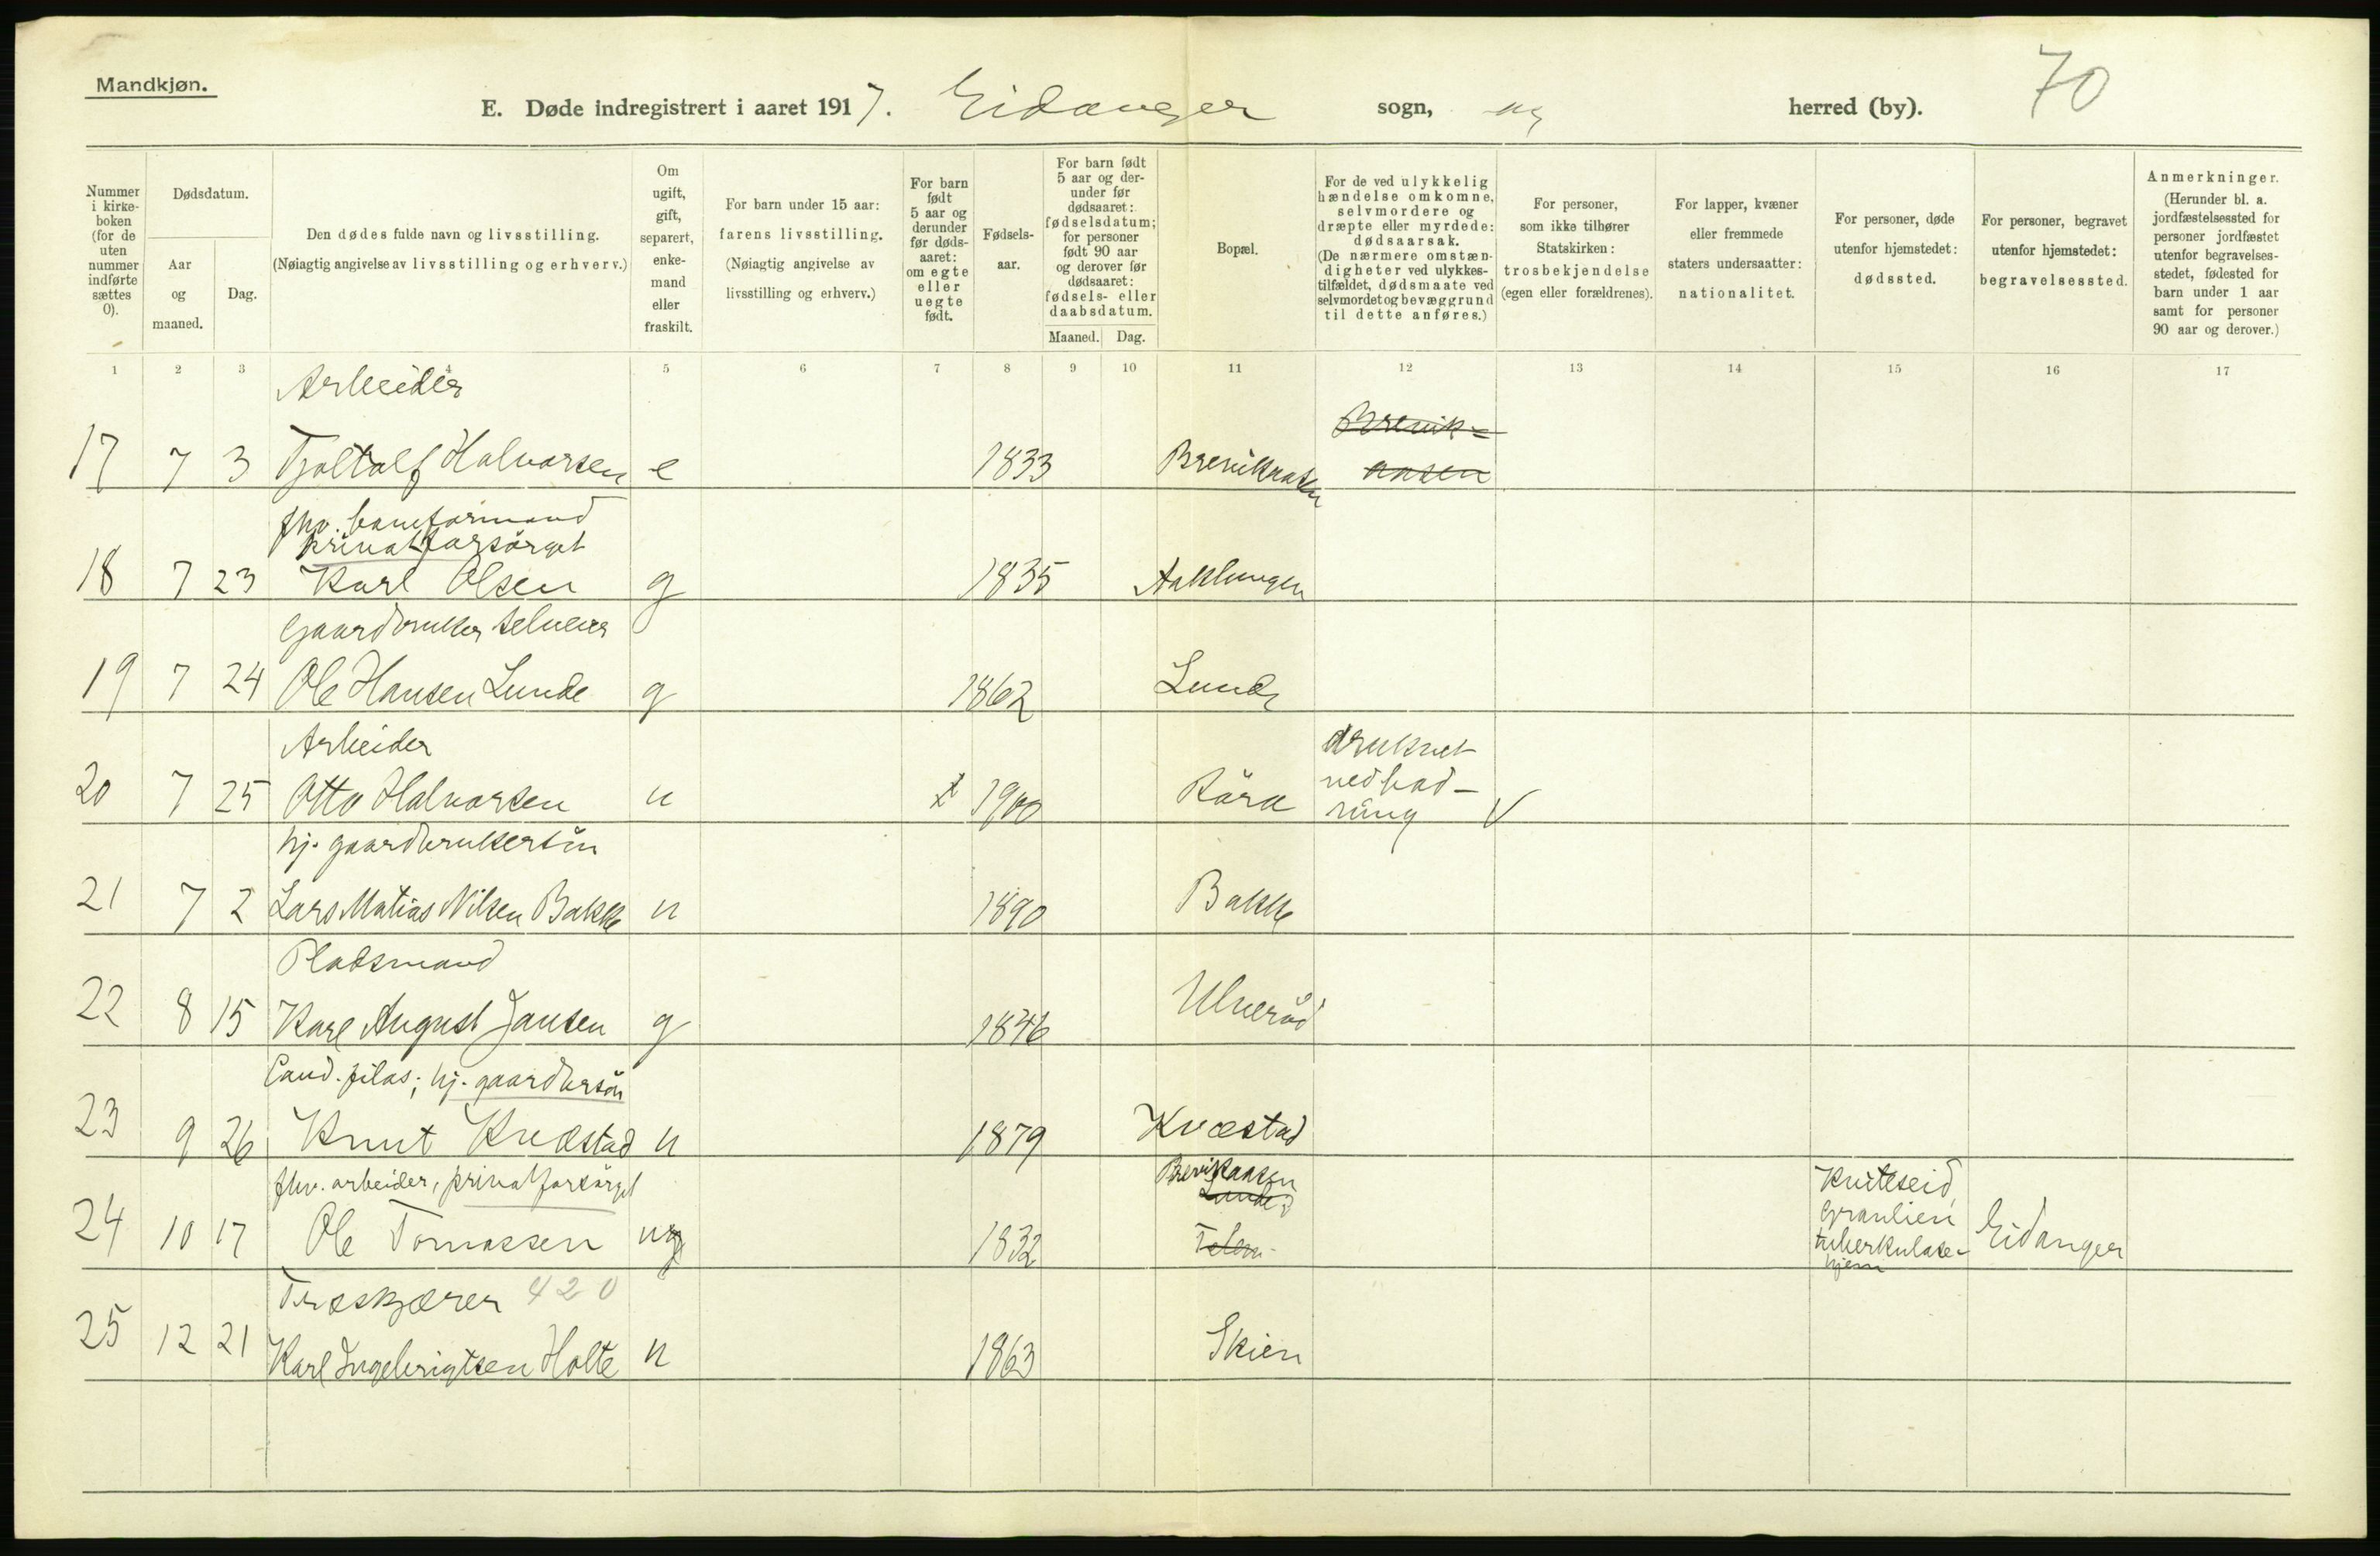 Mandkjøn.
E. Døde indregistrert i aaret 1917. Eidanger sogn, og herred (by). 70
Nummer i kirke-boken (for de uten nummer indførte sættes 0).
Dødsdatum.
Aar og maaned.
Dag.
Den dødes fulde navn og livsstilling.
(Nøiagtig angivelse av livsstilling og erhverv.)
Om ugift, gift, separert, enke-mand eller fraskilt.
For barn under 15 aar:
farens livsstilling.
(Nøiagtig angivelse av
livsstilling og erhverv.)
For barn født 5 aar og derunder før døds-aaret: om egte eller uegte født.
Fødsels-aar.
For barn født 5 aar og der-under før dødsaaret: fødselsdatum; for personer født 90 aar og derover før dødsaaret: fødsels- eller daabsdatum.
Maaned. Dag.
Bopæl.
For de ved ulykkelig hændelse omkomne, selvmordere og dræpte eller myrdede: dødsaarsak. (De nærmere omstæn-digheter ved ulykkes-tilfældet, dødsmaate ved selvmordet og bevæggrund til dette anføres.)
For personer, som ikke tilhører Statskirken: trosbekjendelse (egen eller forældrenes).
For lapper, kvæner eller fremmede staters undersaatter: nationalitet.
For personer, døde utenfor hjemstedet: dødssted.
For personer, begravet utenfor hjemstedet: begravelsessted.
Anmerkninger. (Herunder bl. a. jordfæstelsessted for personer jordfæstet utenfor begravelses-stedet, fødested for barn under 1 aar samt for personer 90 aar og derover.)
1 2 3 4 5 6 7 8 9 10 11 12 13 14 15 16 17
Arbeider
Brevik=
17 7 3 Tjøstolf Halvorsen e 1833 Brevikaasen aasen
fhv. baneformand
privatforsörget
18 7 23 Karl Olsen g 1835 Aaklungen
Gaardbruker selveier
19 7 24 Ole Hansen Lunde g 1862 Lunde
Arbeider druknet
20 7 25 Otto Halvorsen u 1900 Röra ved bad-
ning V
hj. gaardbrukersön
21 7 2 Lars Matias Nilsen Bakke u 1890 Bakke
Pladsmand
22 8 15 Karl August Jansen g 1846 Ulveröd
Cand. filos; hj. gaardbrsön
23 9 26 Knut Kvæstad u 1879 Kvæstad
fhv. arbeider, privatforsörget Brevikaasen Kviteseid,
Lunde Granlien
24 10 17 Ole Tomassen g 1832 Telem. tuberkulose- Eidanger
hjem
Træskjærer 420
25 12 21 Karl Ingebrigtsen Holte u 1863 Skien